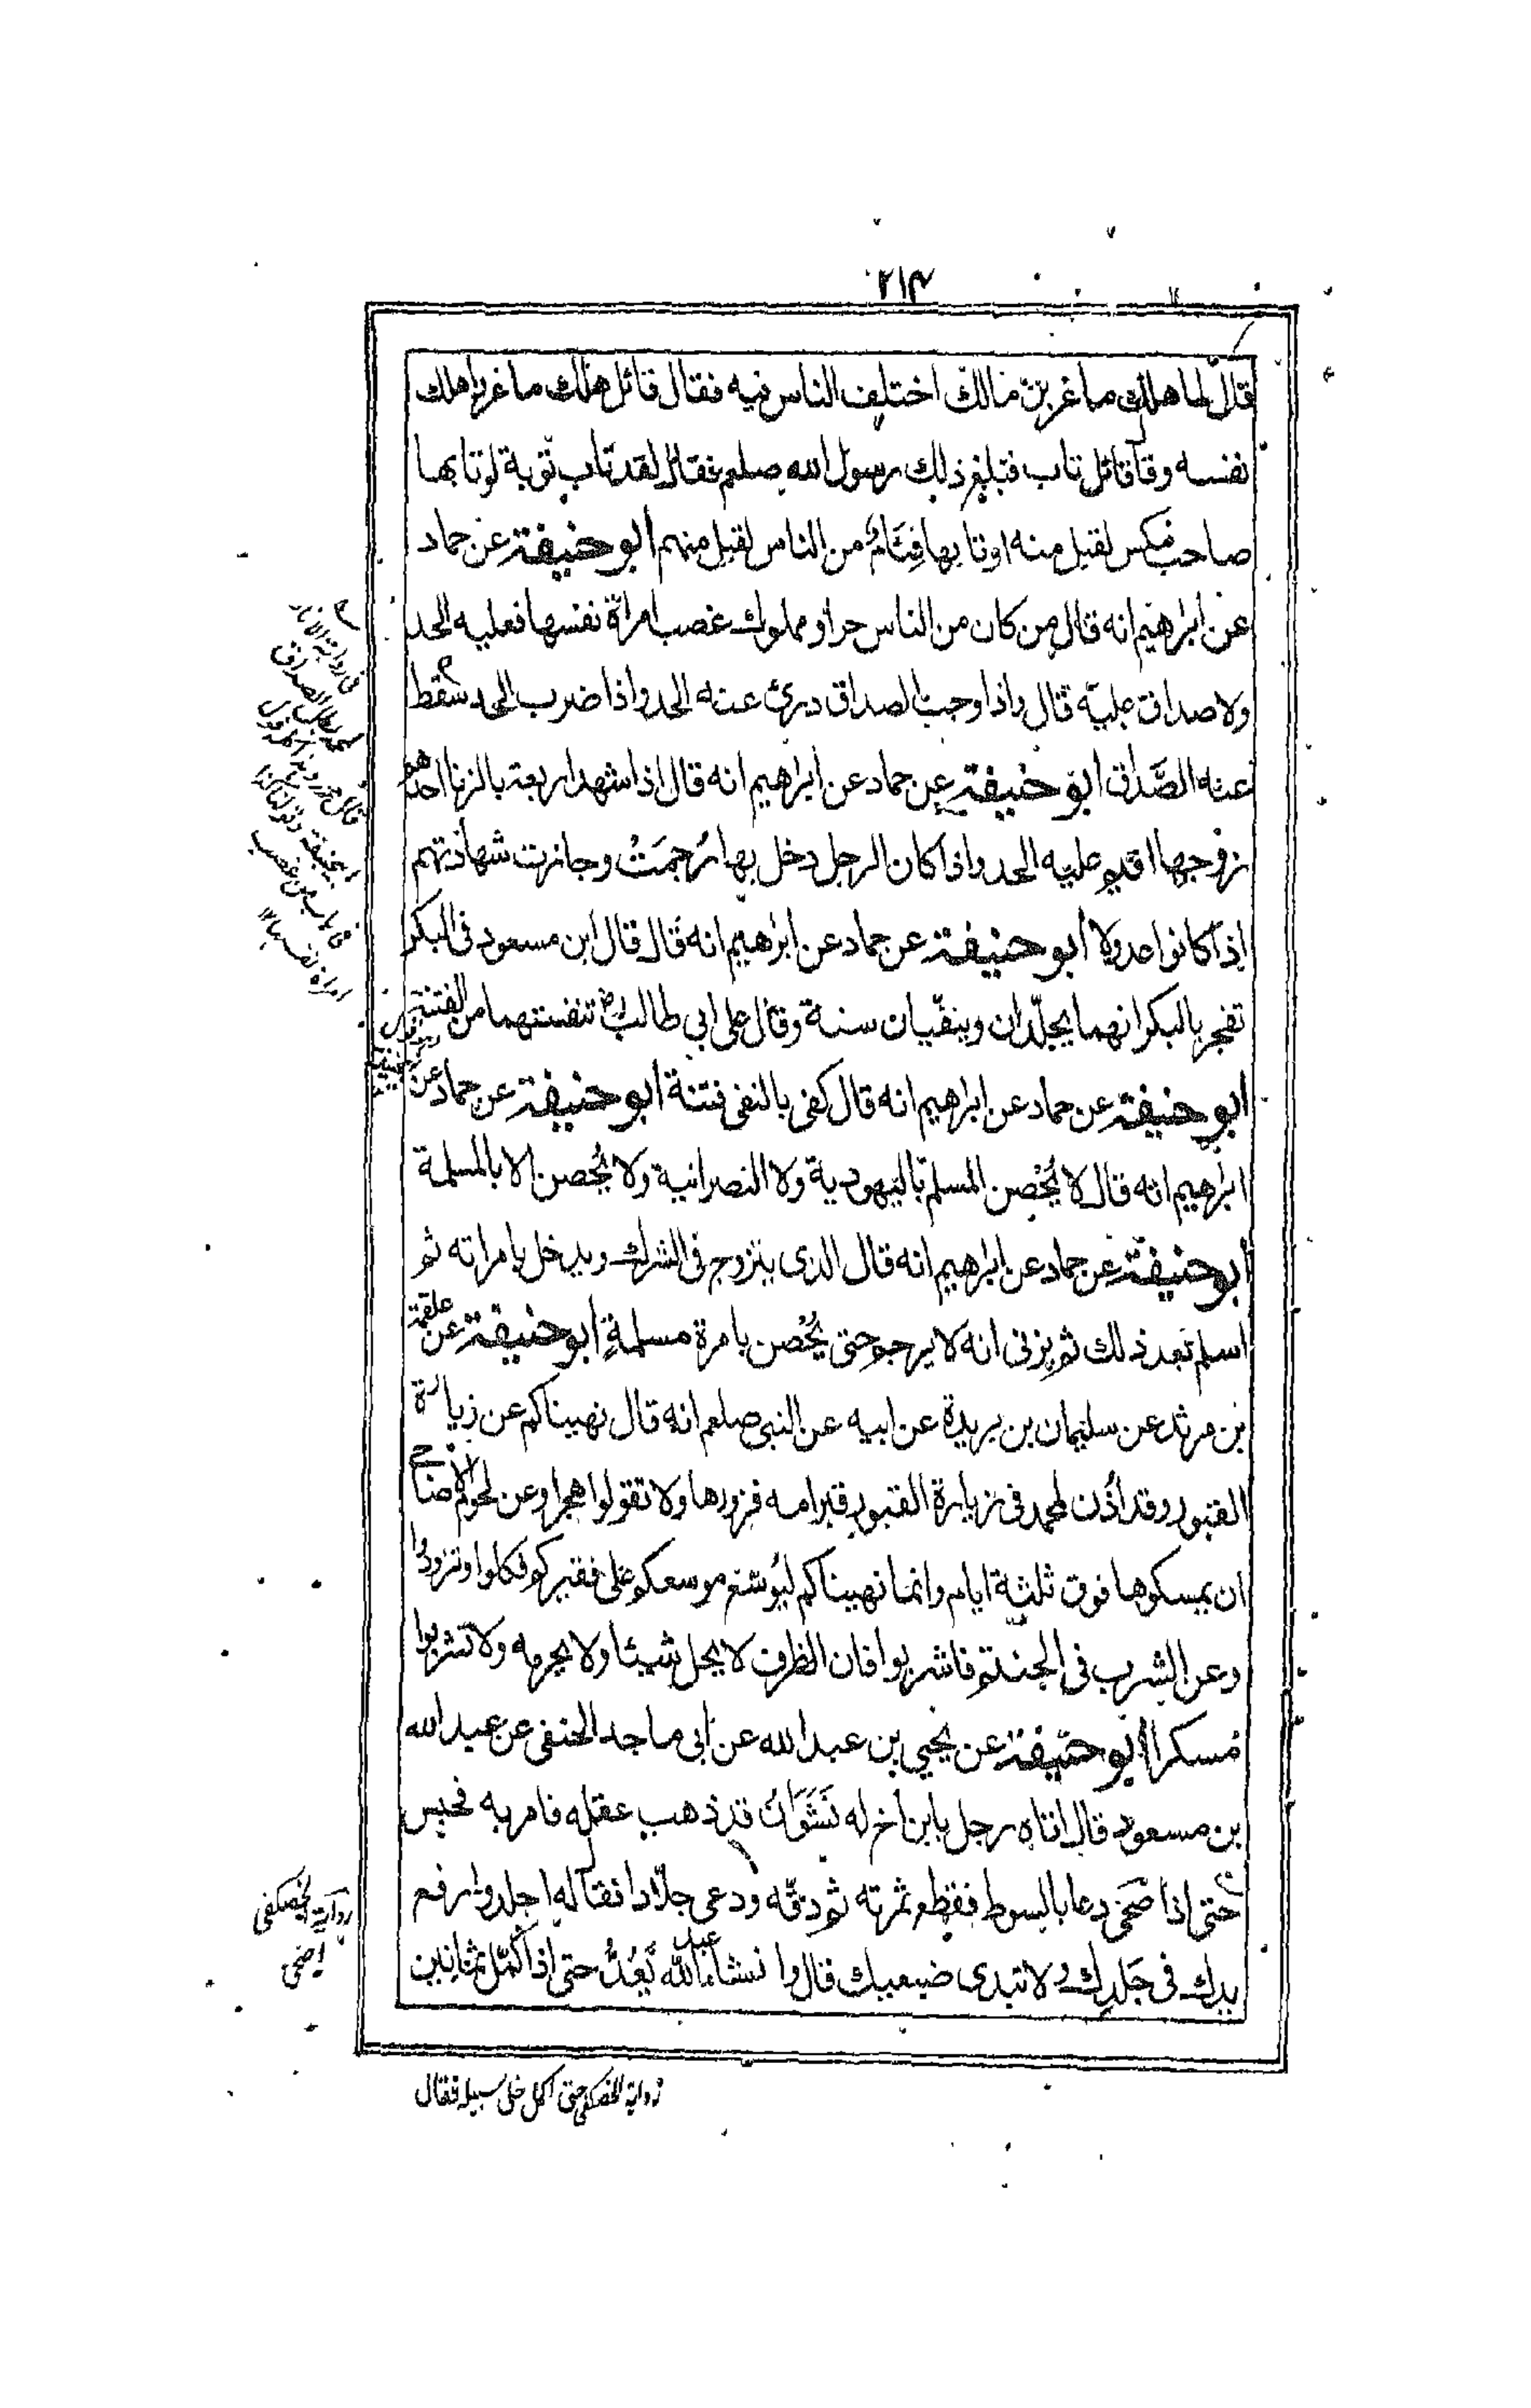 ٢١٣
قال لما هلك ماعز بن مالك اختلف الناس فيه فقال قائل هلك ماعز واهلك
نفسه وقال قائل تاب فبلغ ذلك رسول الله صلعم فقال لقد تاب توبة لو تابها
صاحب مكس لقبل منه او تابها فِئَامٌ من الناس لقبل منهم ابو حنيفة عن حماد
عن ابراهيم انه قال من كان من الناس حرا او مملوك غصب امراة نفسها فعليه الحد
ولا صداق عليه قال واذا وجب الصداق درئ عنه الحد واذا ضرب الحد سقط
عنه الصَّداق ابو حنيفة عن حماد عن ابراهيم انه قال اذا شهد اربعة بالزنا احدهم
زوجها اقيم عليه الحد واذا كان الرجل دخل بها رُجِمَتْ وجازت شهادتهم
اذا كانوا عدولا ابو حنيفة عن حماد عن ابراهيم انه قال قال ابن مسعود فى البكر
تفجر بالبكر انهما يجلّدان وينفّيان سنة وقال على ابى طالب من الفتنة
ابو حنيفة عن حماد عن ابراهيم انه قال كفى بالنفى فتنة ابو حنيفة عن حماد عن
ابراهيم انه قال لا يُحْصن المسلم باليهودية ولا النصرانية ولا يُحصن الا بالمسلمة
ابو حنيفة عن حماد عن ابراهيم انه قال الذى يتزوج فى الشرك ويدخل بامراته ثم
اسلم بعد ذلك ثم يزنى انه لا يرجم حتى يُحْصن بامرة مسلمةٍ ابو حنيفة عن علقمة
بن مرثد عن سليمان بن بريدة عن ابيه عن النبى صلعم انه قال نهيناكم عن زيارة
القبور وقد اُذن لمحمد فى زيارة القبور قبر امه فزورها ولا تقولوا هجرا وعن لحوم الاضاحى
ان يمسكوها فوق ثلثة ايام وانما نهيناكم ليوسّع موسعكم على فقيركم فكلوا وتزودوا
وعن الشرب فى الحنتم فاشربوا فان الظرف لا يحل شيئا ولا يحرمه ولا تشربوا
مسكرا ابو حنيفة عن يحيى بن عبد الله عن ابى ماجد الحنفى عن عبد الله
بن مسعود قال اتاه رجل بابن اخ له نَشْوَانُ قد ذهب عقله فامر به فحبس
حتى اذا صَحٰى دعا بالسوط فقطع ثمرته ثم دقّه ودعى جلّادا فقال له اجلد وارفع
يدك فى جَلدِك ولا تبدى ضبعيك قال وانشاء عبد الله يَعُدُّ حتى اذا اكمّل ثمانين
رواية الحصكفى
رواية الحصكفى حتى اكمل خلى سبيله فقال